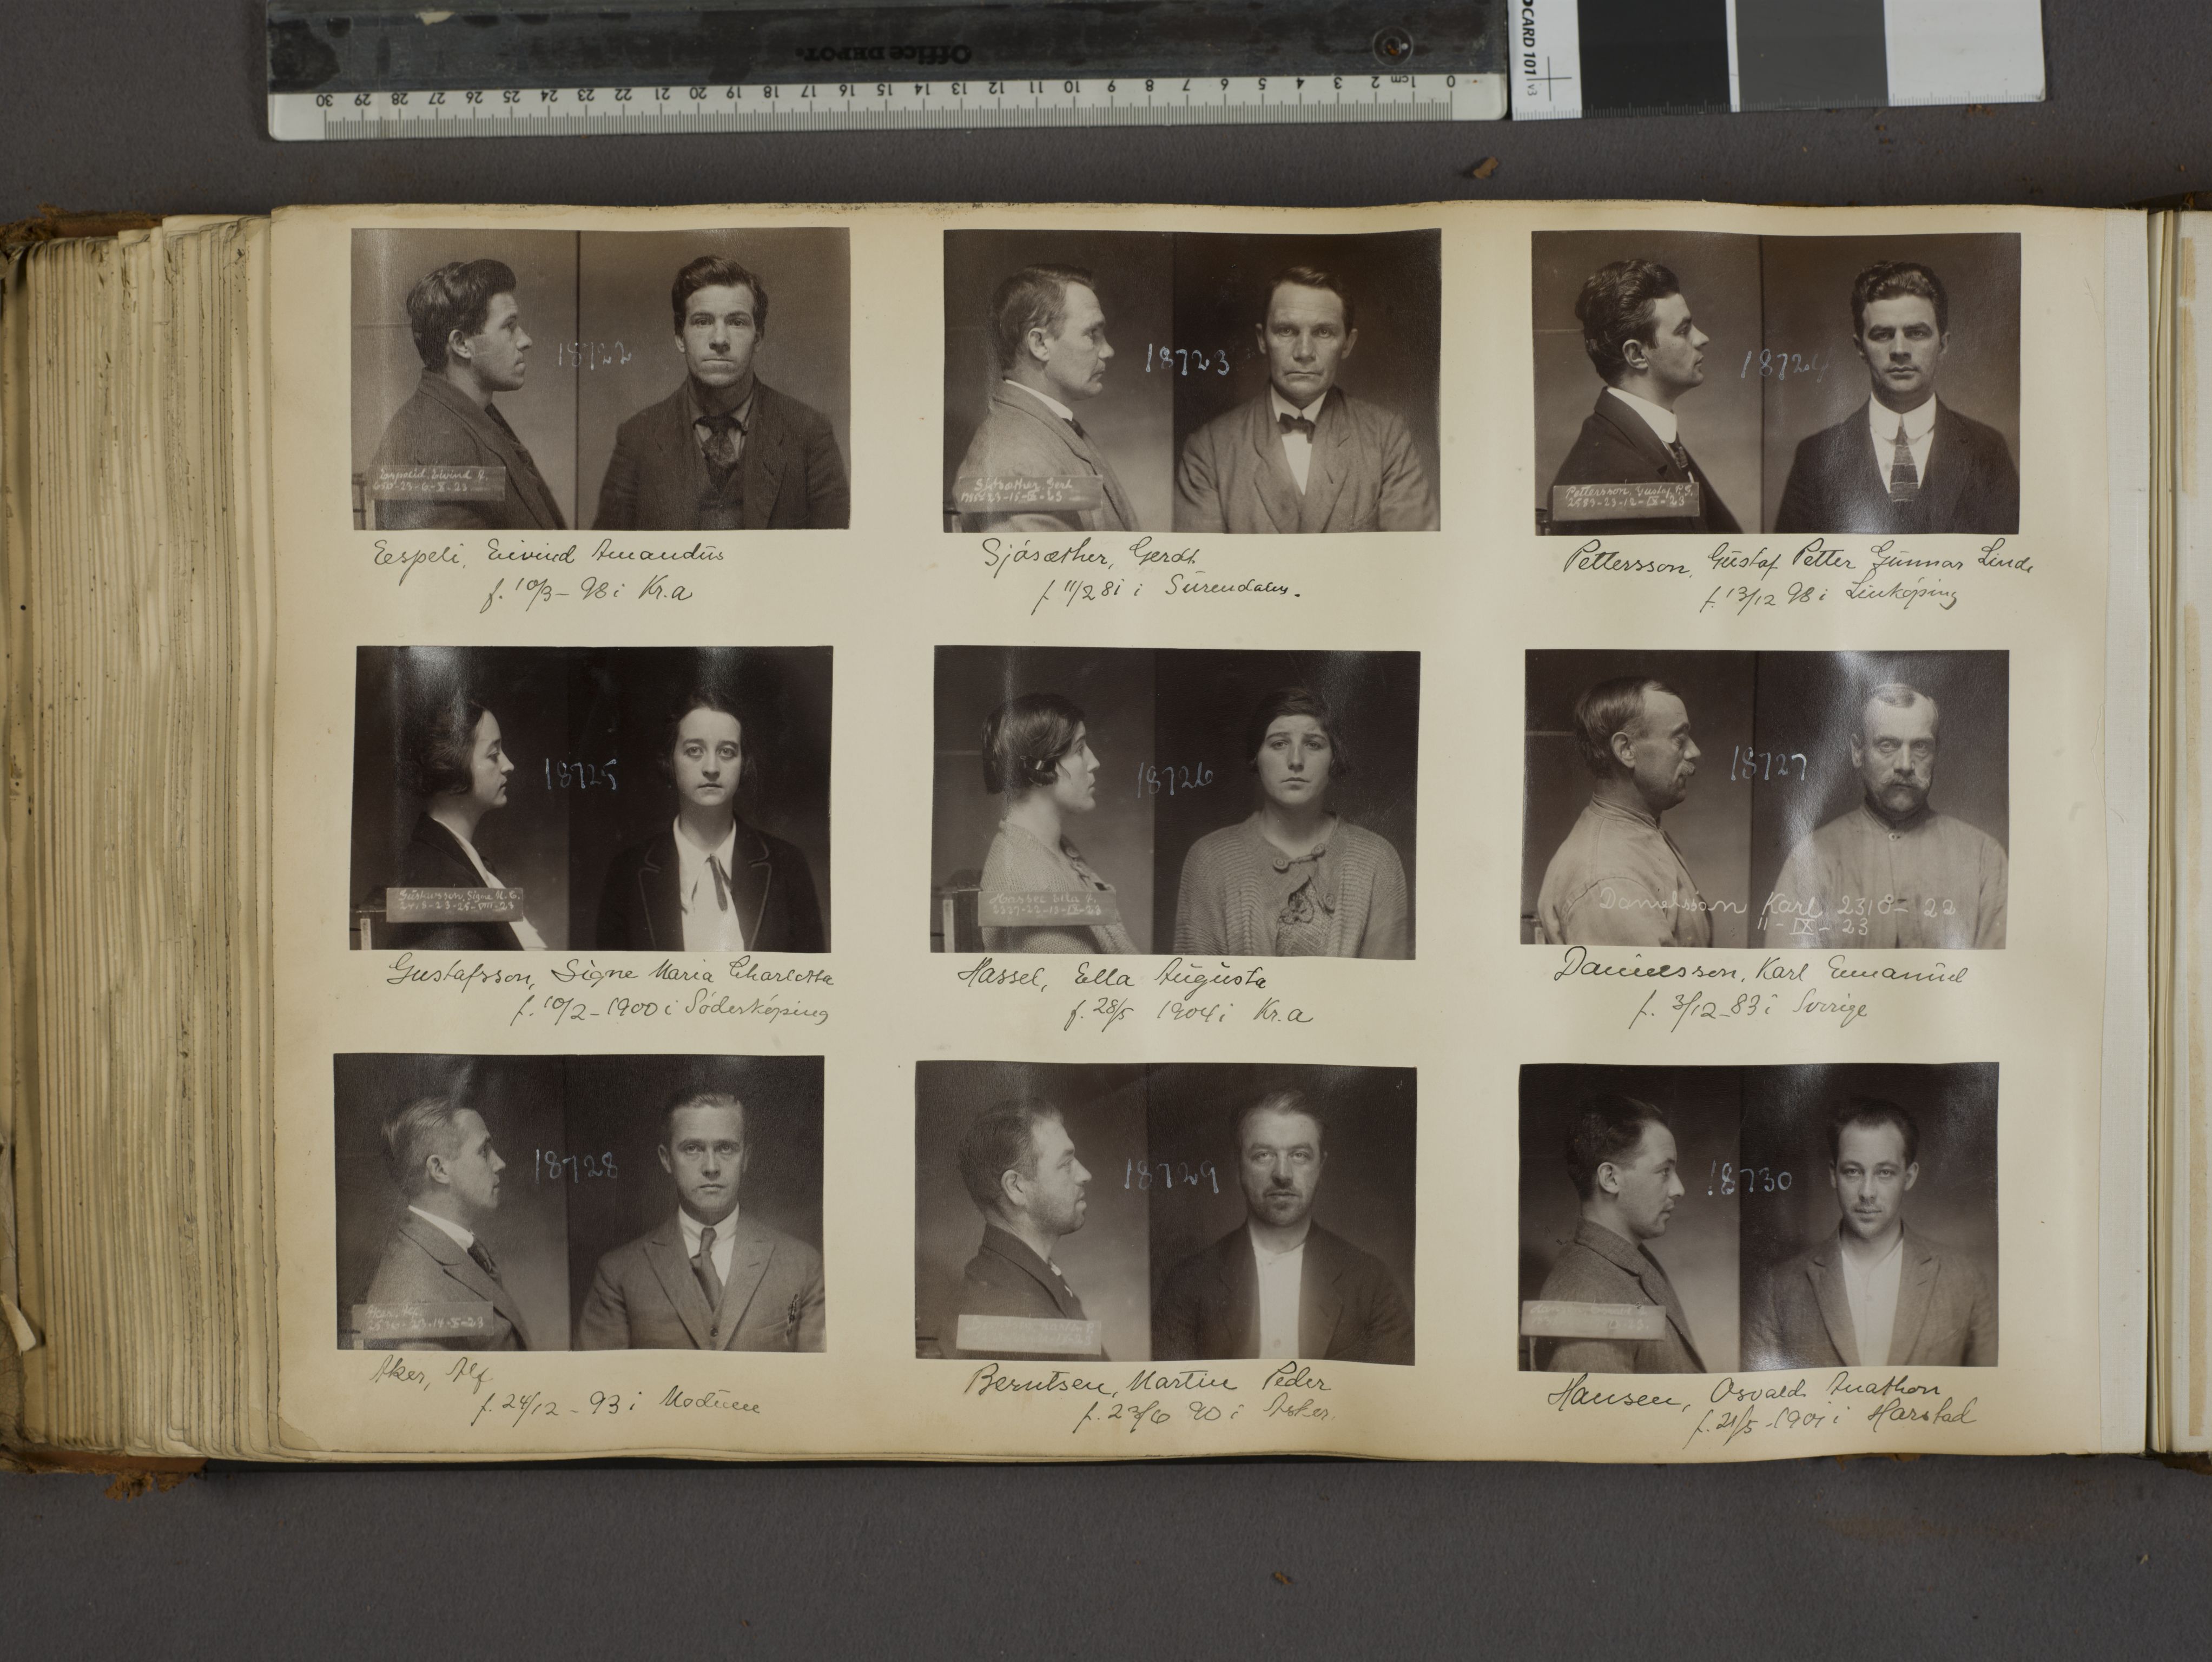 Office DEPOT.
0 1cm 2 3 4 5 6 7 8 9 10 11 12 13 14 15 16 17 18 19 20 21 22 23 24 25 26 27 28 29 30
CARD 101 v3
18722
18723
18724
Pettersson, Gustaf P. G.
2583-23-12-IX-23
Eespeli, Eivind Amandus
f. 10/3-98 i Kr.a
Sjøsæther, Gerdt
f. 11/2 81 i Surendalen.
Pettersson, Gustaf Petter Gunnar Linde
f. 13/12 98 i Linköping
18725
18726
18727
Gustafsson, Signe M. C.
2418-23-25-VIII-23
Hassel Ella A.
2337-22-13-IX-23
Danielsson Karl 2318-22
11-IX-23
Gustafsson, Signe Maria Charlotta
f. 10/2-1900 i Söderköping
Hassel, Ella Augusta
f. 28/5 1904 i Kr.a
Danielsson, Karl Emmanuel
f. 3/12-83 i Sverige
18728
18729
18730
Aker, Alf
f. 24/12-93 i Modum
Berntsen, Martin Peder
f. 23/6 90 i Asker.
Hansen, Osvald Anathon
f. 21/5-1901 i Harstad